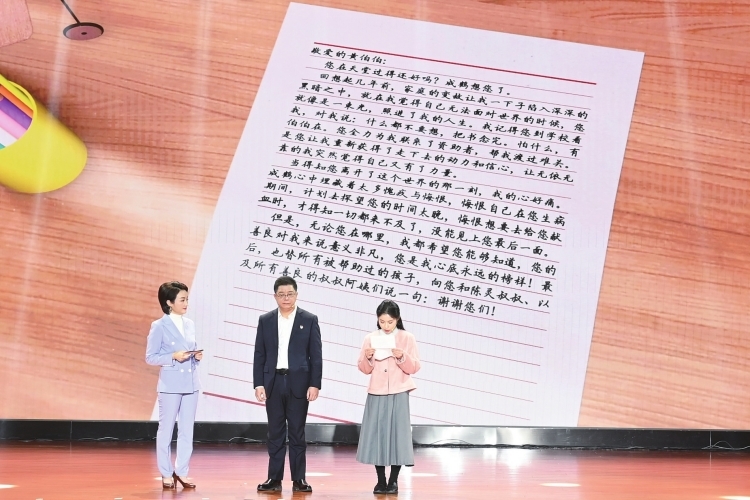 敬爱的黄伯伯：
您在天堂过得还好吗？成鹤想您了。
回想起几年前，家庭的变故让我一下子陷入深深的
黑暗之中，就在我觉得自己无法面对世界的时候，您
就像是一束光，照进了我的人生。我记得您到学校看
我，对我说：什么都不要想，把书念完，怕什么，有
伯伯在。您全力为我联系了资助者，帮我渡过难关。
是您让我重新获得了走下去的动力和信心，让无依无
靠的我突然觉得自己又有了力量。
当得知您离开了这个世界的那一刻，我的心好痛。
成鹤心中埋藏着太多愧疚与悔恨，悔恨自己在您生病
期间，计划去探望您的时间太晚，悔恨想要去给您献
血时，才得知一切都来不及了，没能见上您最后一面。
但是，无论您在哪里，我都希望您能够知道，您的
善良对我来说意义非凡，您是我心底永远的榜样！最
后，也替所有被帮助过的孩子，向您和陈灵叔叔、以
及所有善良的叔叔阿姨们说一句：谢谢您们！